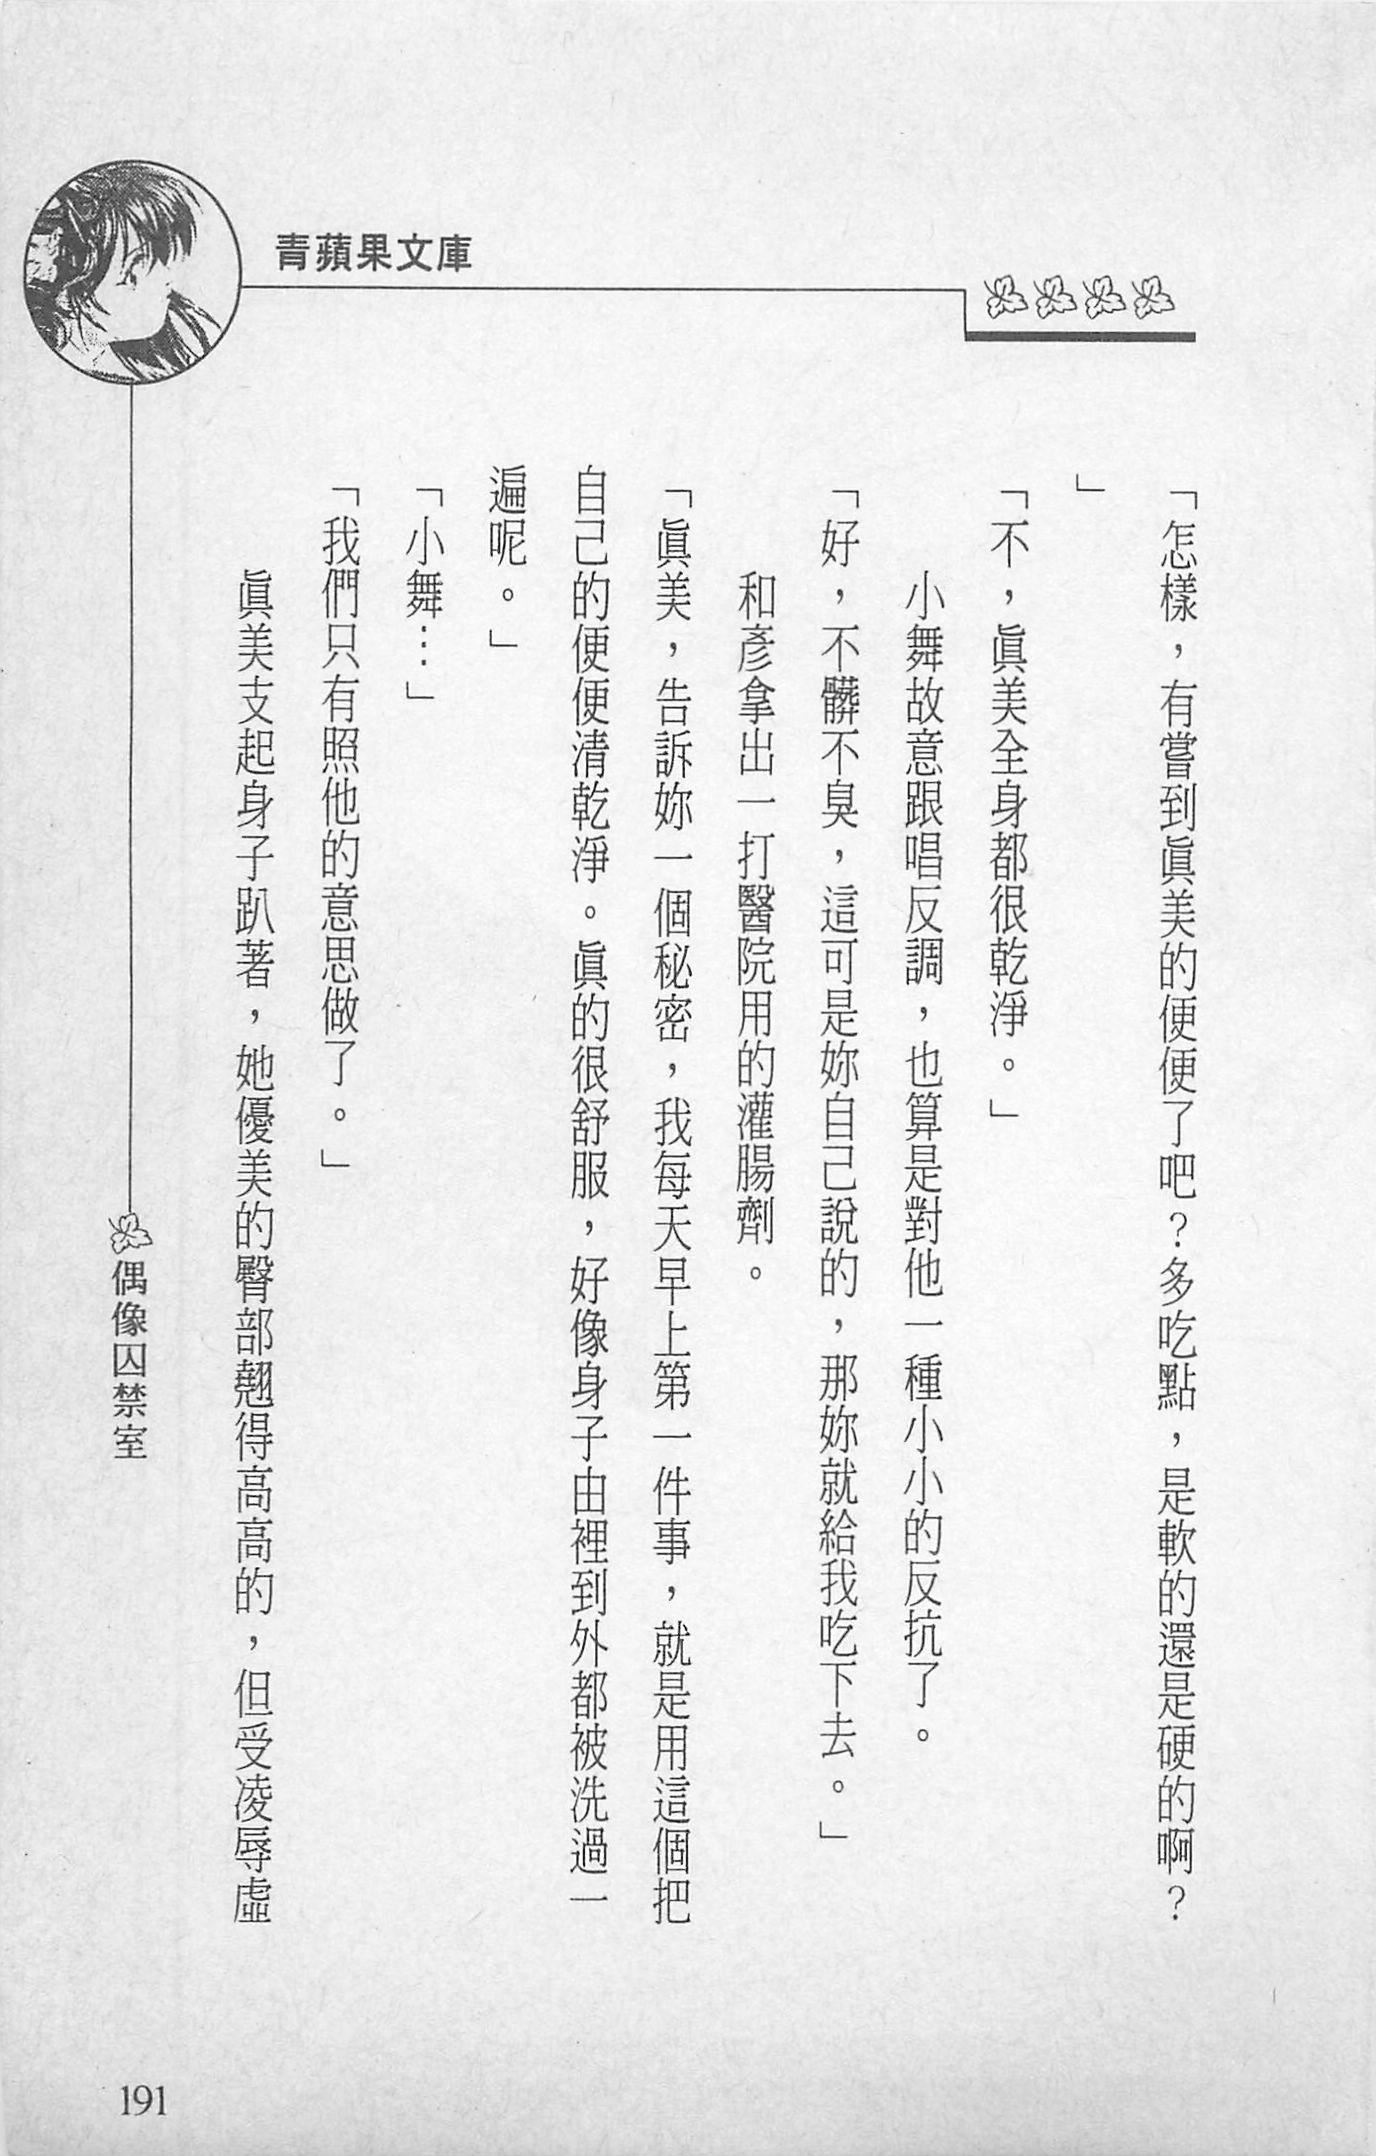 青蘋果文庫
「怎樣，有嘗到眞美的便便了吧？多吃點，是軟的還是硬的啊？
」
「不，眞美全身都很乾淨。」
小舞故意跟唱反調，也算是對他一種小小的反抗了。
「好，不髒不臭，這可是妳自己說的，那妳就給我吃下去。」
和彥拿出一打醫院用的灌腸劑。
「眞美，告訴妳一個秘密，我每天早上第一件事，就是用這個把
自己的便便清乾淨。眞的很舒服，好像身子由裡到外都被洗過一
遍呢。」
「小舞…」
「我們只有照他的意思做了。」
眞美支起身子趴著，她優美的臀部翹得高高的，但受凌辱虛
偶像囚禁室
191